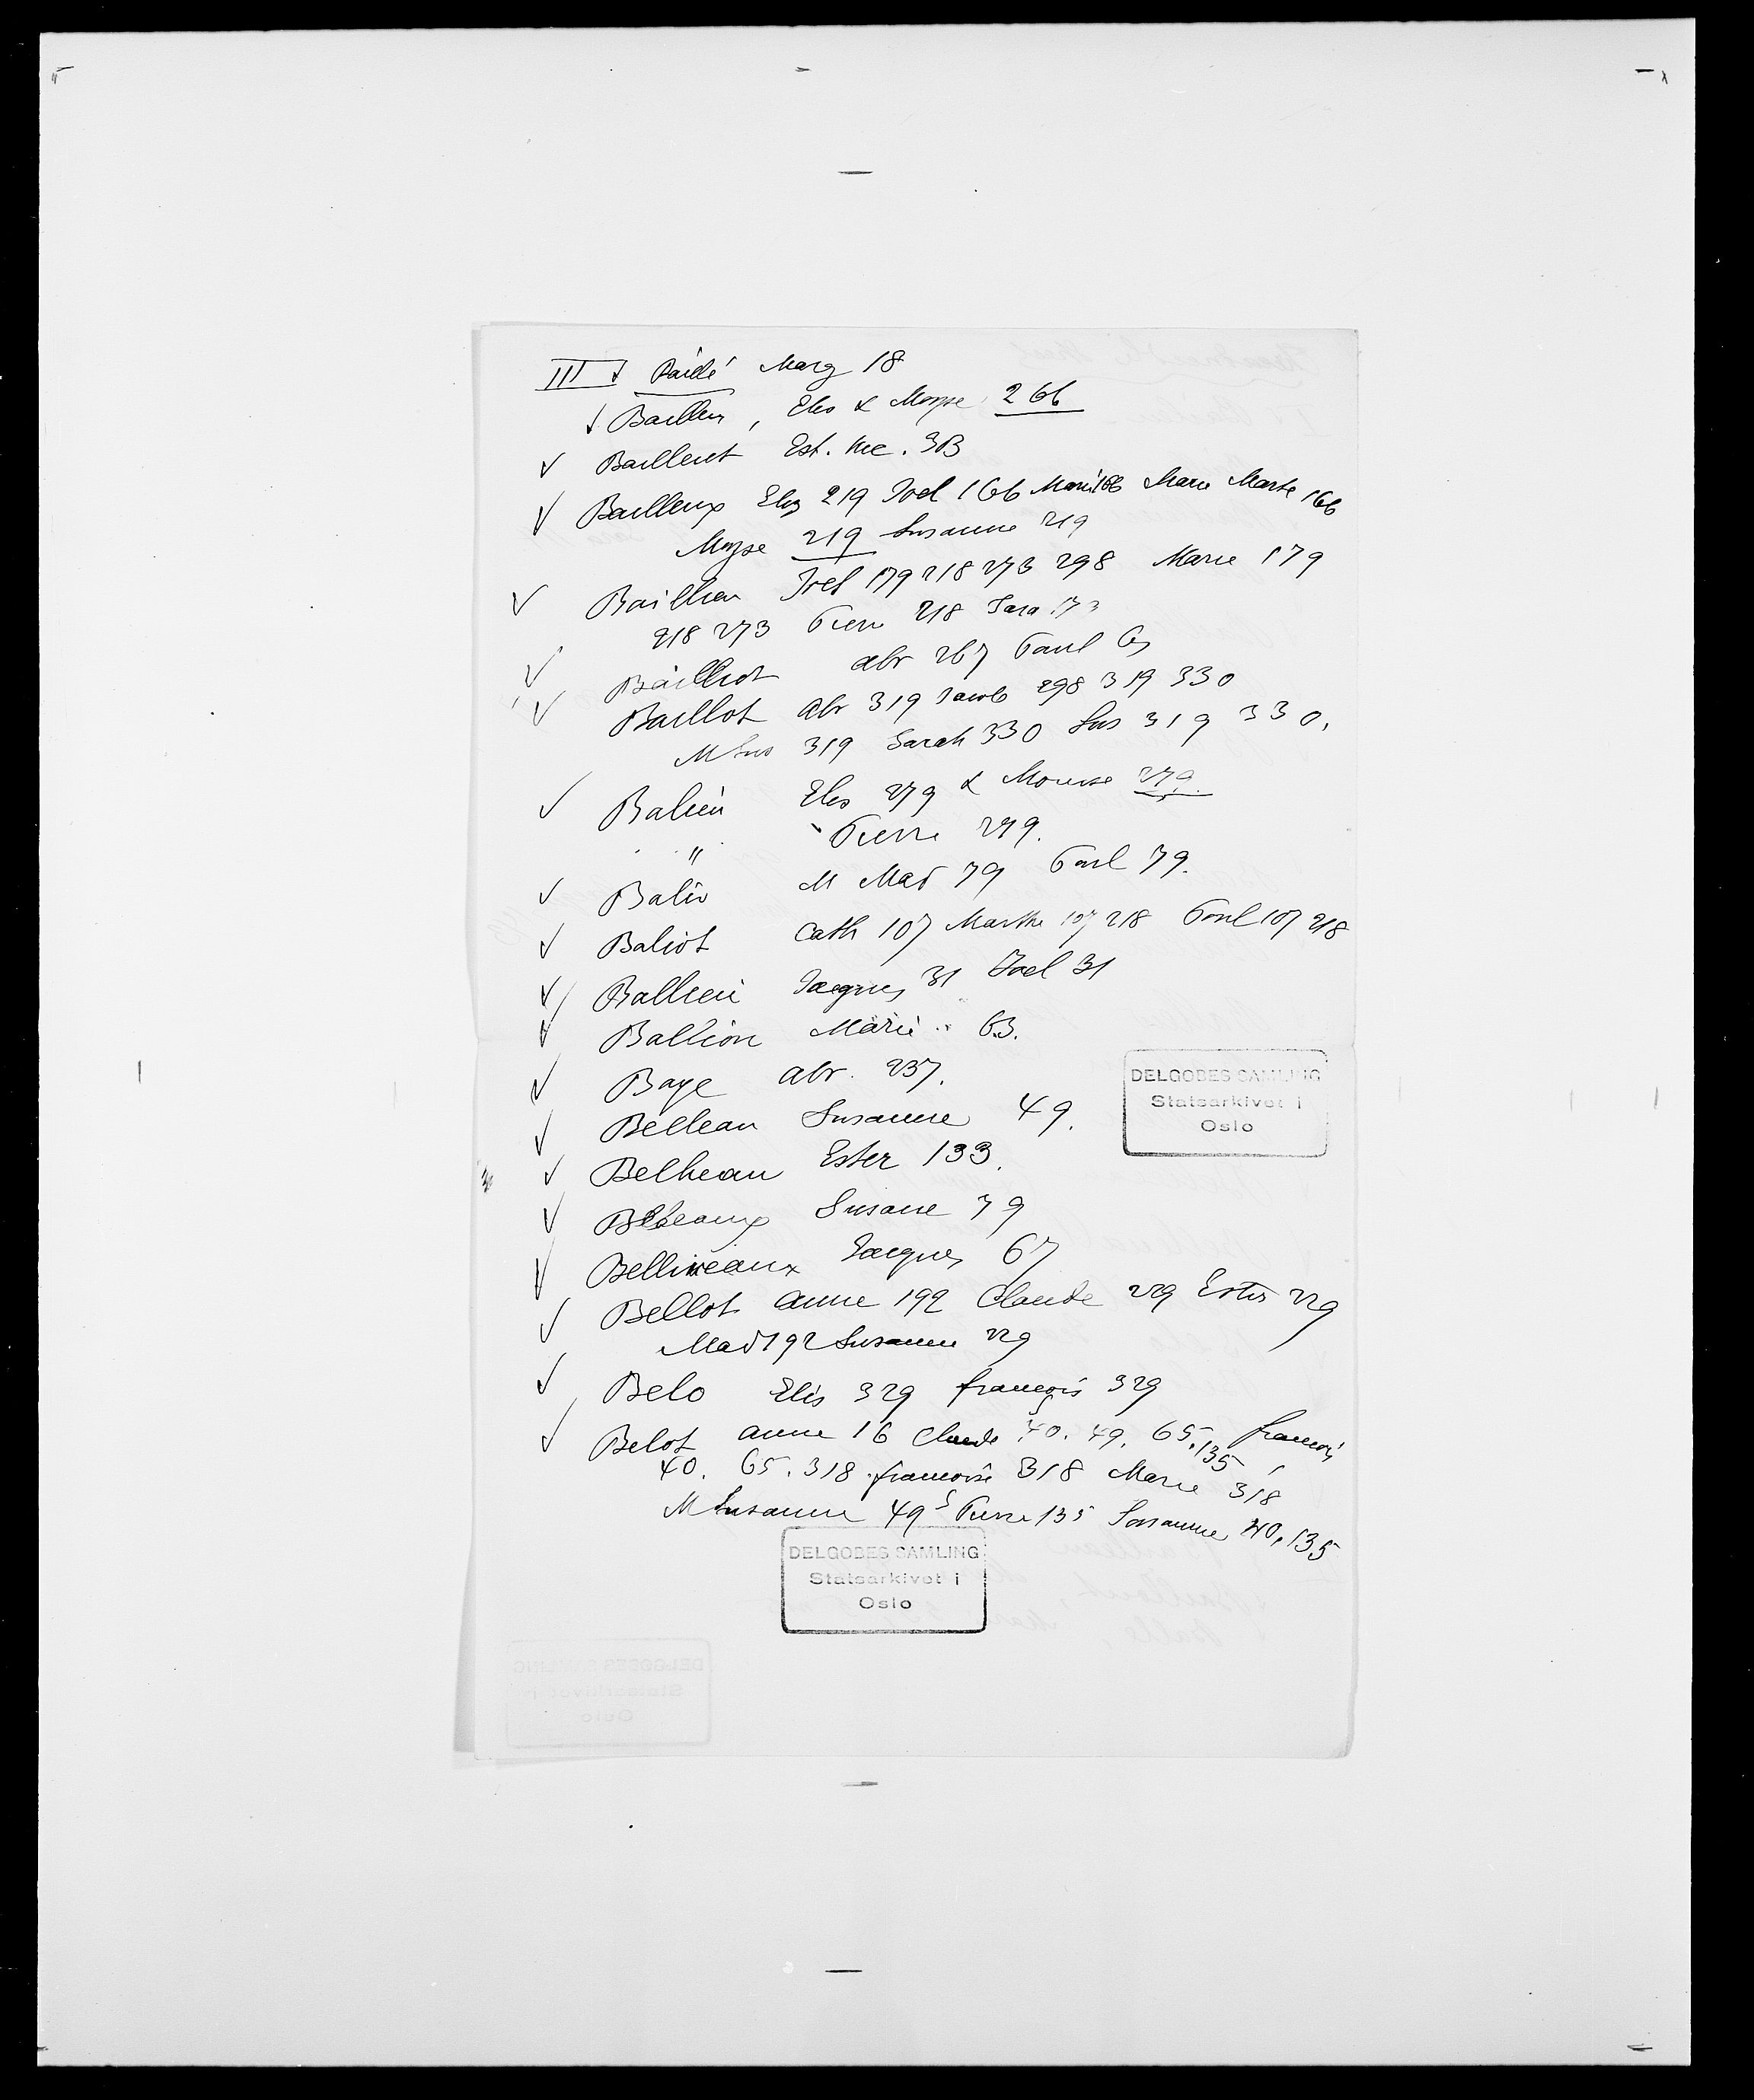 III ✓ Baillé Marg 18
✓ Bailleu, Elis & Moyse 266
✓ Bailleut Est. Mc. 33
✓ Bailleux Eliz 219 Joel 166 Marie 166 Marie Marte 166
Moyse 219 Susanne 219
✓ Baillieu Joel 179 218 273 298 Marie 179
218 273 Pierre 218 Sara 173
✓ Bailliot Abr 267 Paul 67
✓ Baillot Abr 319 Jacob 298 319 330
M Sus 319 Sarah 330 Sus 319 330.
✓ Balieu Elis 279 & Mousse 279
" Pierre 279.
✓ Balio M Mad 79 Paul 79.
✓ Baliot Cath 107 Marthe 107 218 Paul 107 218
✓ Ballieu Jacques 31 Joel 31
✓ Ballion Marie 63.
✓ Baye Abr. 237.
✓ Belleau Susanne 49.
✓ Belheau Ester 133.
✓ Beleaux Susane 79
✓ Belliveaux Jacques 67
✓ Bellot Anne 192 Claude 229 Ester 229
Mad 192 Susanne 229
✓ Belo Elis 329 françois 329
✓ Belot Anne 16 Claude 40. 49. 65. 135 françois
40. 65. 318 françoise 318 Marie 318
M Susanne 49 Pierre 135 Sussanne 40, 135
DELGOBES SAMLING
Statsarkivet i
Oslo
DELGOBES SAMLING
Statsarkivet i
Oslo